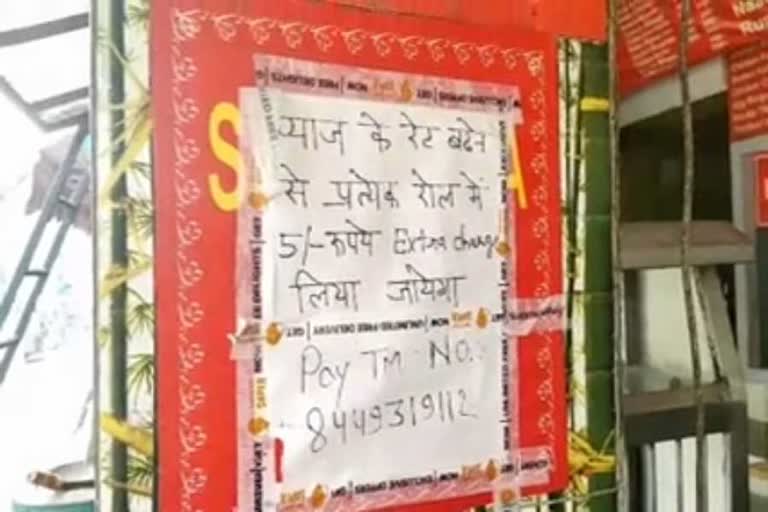 प्याज के रेट बढ़ने
से प्रत्येक रोल में
5/- रूपये Extra charge
लिया जायेगा
Pay Tm No.:
8449319112